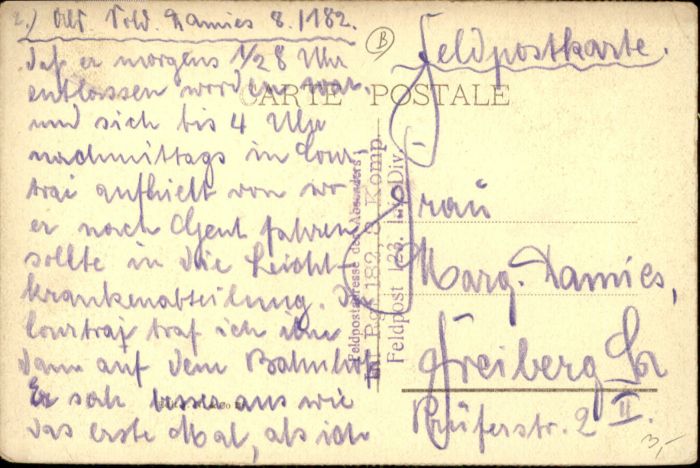 2.) Abs. Sold. Damies 8./182.
daß er morgens 1/2 8 Uhr
entlassen worden war
und sich bis 4 Uhr
nachmittags in Cour-
trai aufhielt von wo
er nach Gent fahren
sollte in die Leicht-
krankenabteilung. In
Courtraj traf ich ihn
dann auf dem Bahnhof
Er sah besser aus wie
das erste Mal, als ich
B
Feldpostkarte.
CARTE POSTALE
Feldpostadresse des Absenders
Inf. Rgt. 182, 8. Komp.
Feldpost 123. Inf.-Div.
Frau
Marg. Damies,
Freiberg Sa
Straße 2 II.
3,-